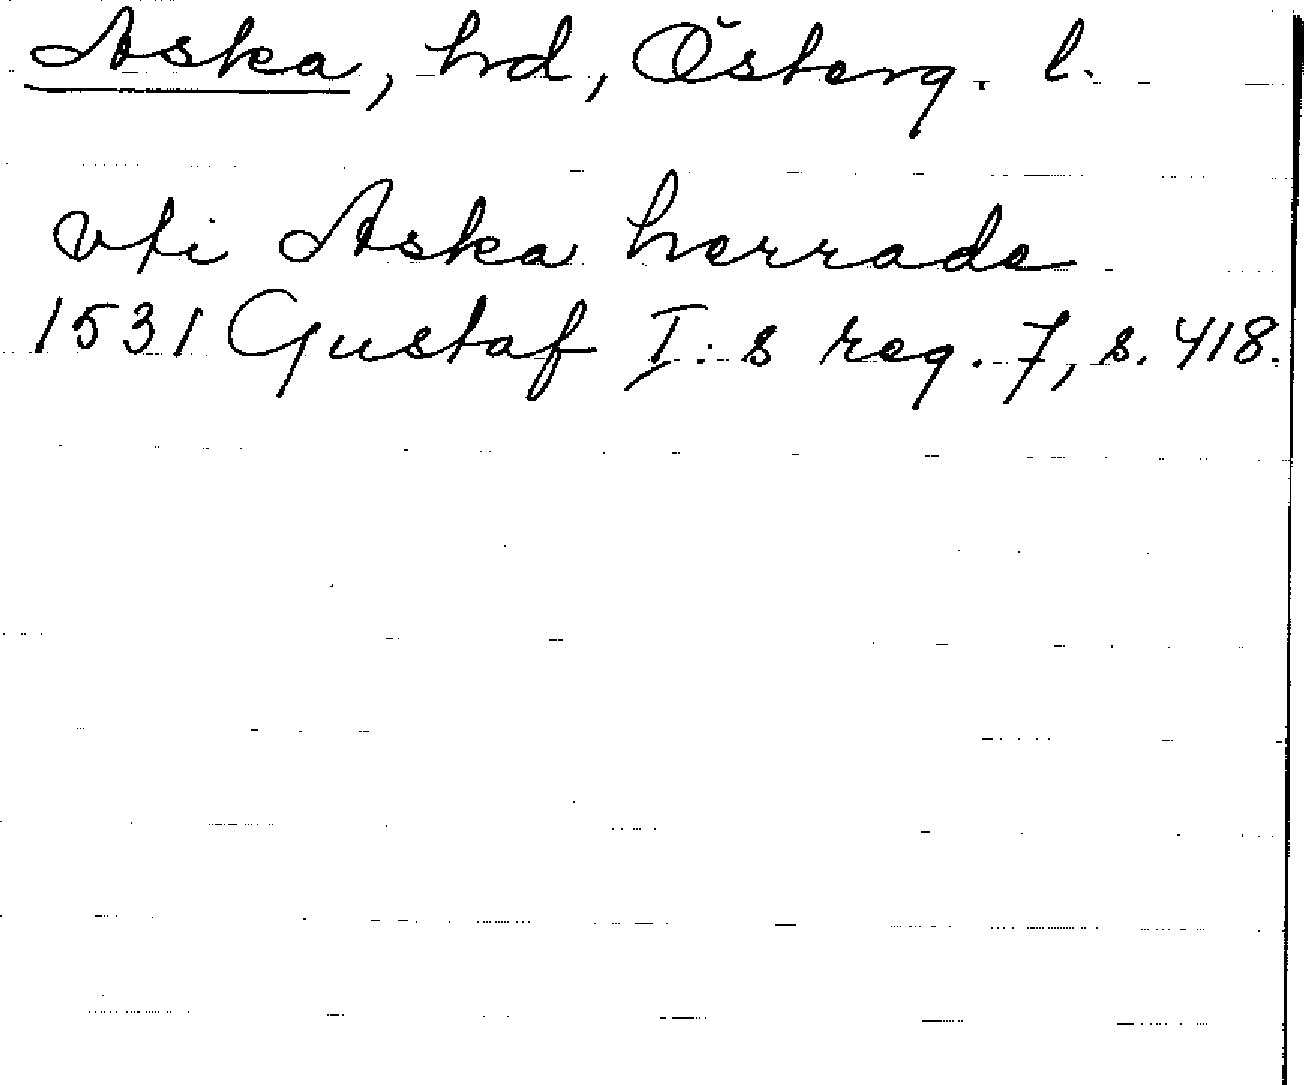 Aska, hd, Österg. l.
vti Aska herrade
1531 Gustaf I:s reg. 7, s. 418.